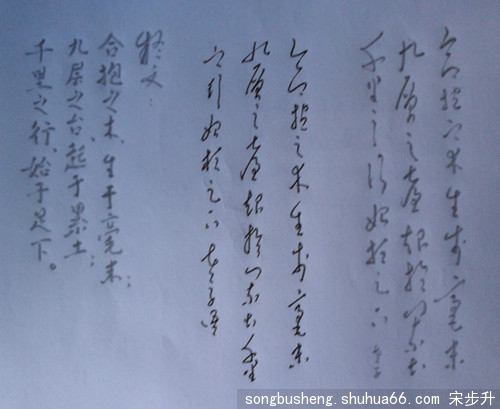 合抱之木生於毫末
九層之臺起於累土
千里之行始於足下
合抱之木生於毫末
九層之臺起於累土千里
之行始於足下老子语
释文：
合抱之木，生于毫末；
九层之台，起于累土；
千里之行，始于足下。
songbusheng.shuhua66.com 宋步升